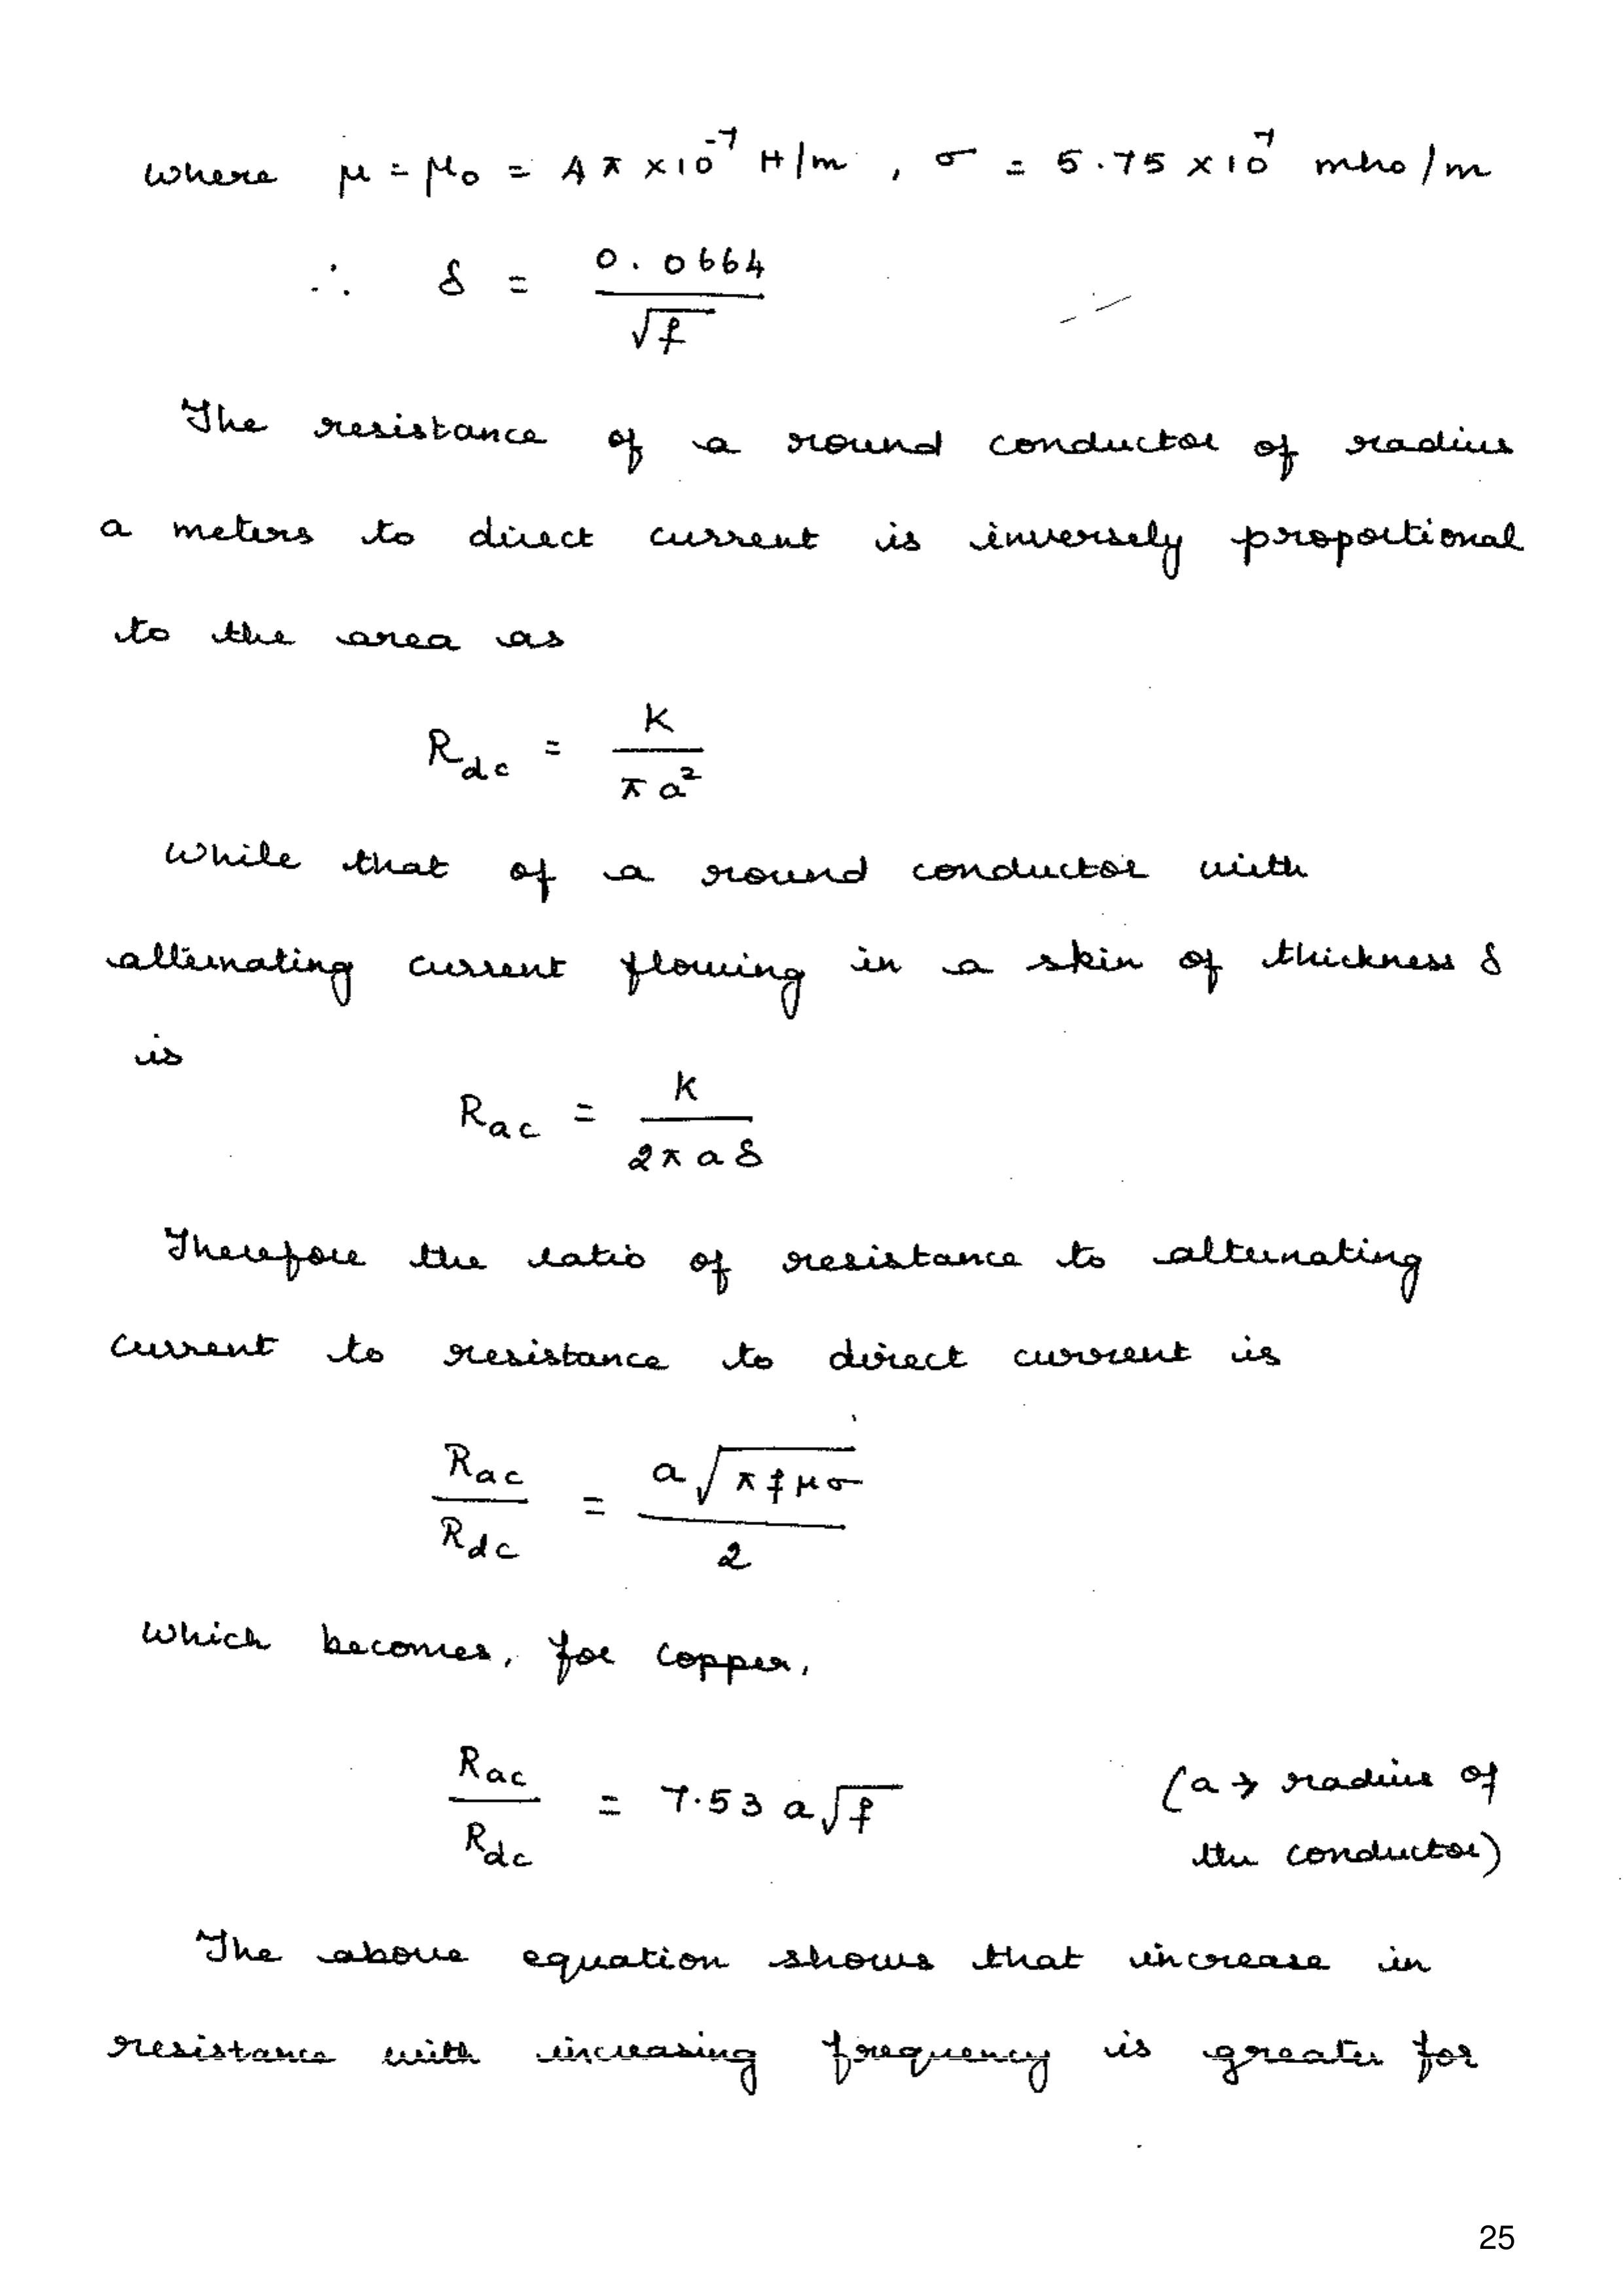 where μ = μ₀ = 4π × 10⁻⁷ H/m , σ = 5.75 × 10⁷ mho/m
∴ δ = 0.0664 / √f
The resistance of a round conductor of radius
a meters to direct current is inversely proportional
to the area as
R_dc = K / πa²
While that of a round conductor with
alternating current flowing in a skin of thickness δ
is
R_ac = k / 2πaδ
Therefore the ratio of resistance to alternating
current to resistance to direct current is
R_ac / R_dc = a√(πfμσ) / 2
which becomes, for copper,
R_ac / R_dc = 7.53 a√f (a → radius of
the conductor)
The above equation shows that increase in
resistance with increasing frequency is greater for
25